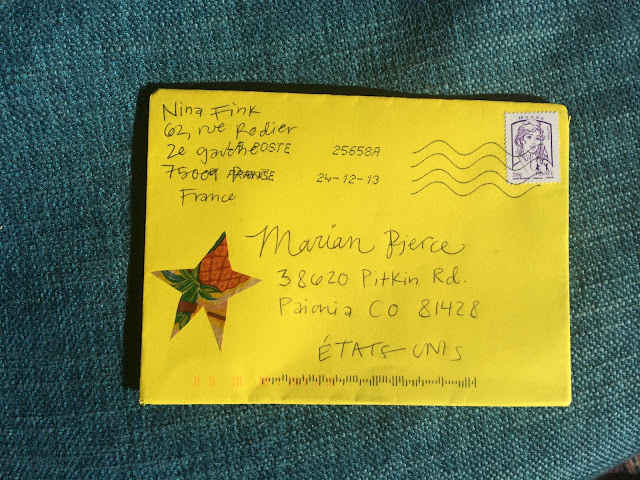 Nina Fink
62, rue Rodier
2e gauche POSTE 25658A
75009 24-12-13
France
MONDE
20g
Marian Pierce
38620 Pitkin Rd.
Paionia CO 81428
ÉTATS UNIS